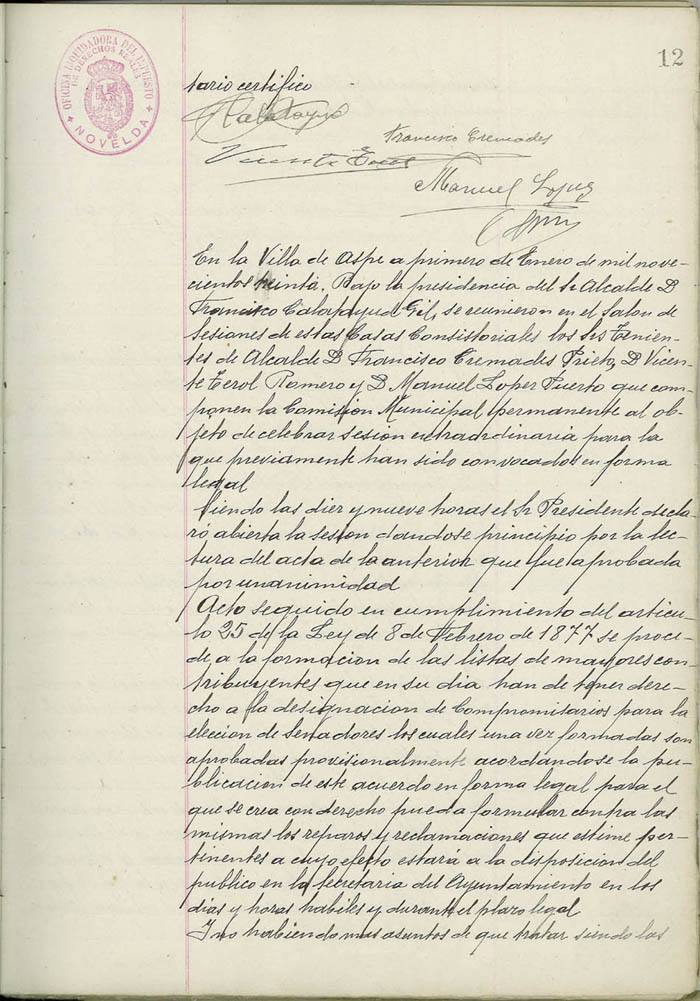 12
OFICINA LIQUIDADORA DEL IMPUESTO
DE DERECHOS REALES
NOVELDA
tario certifico
Calatayud
Francisco Cremades
Vicente Erol
Manuel Lopez
En la Villa de Aspe a primero de Enero de mil nove-
cientos treinta. Bajo la presidencia del Sr Alcalde D
Francisco Calatayud Gil, se reunieron en el Salon de
Sesiones de estas Casas Consistoriales los Srs Tenien-
tes de Alcalde D Francisco Cremades Prieto, D Vicen-
te Erol Romero y D Manuel Lopez Puerto que com-
ponen la Comision Municipal permanente al ob-
jeto de celebrar sesion extraordinaria para la
que previamente han sido convocados en forma
legal
Siendo las diez y nueve horas el Sr Presidente decla-
ró abierta la sesion dandose principio por la lec-
tura del acta de la anterior que fue aprobada
por unanimidad
Acto seguido en cumplimiento del articu-
lo 25 de la Ley de 8 de Febrero de 1877 se proce-
de a la formacion de las listas de mayores con-
tribuyentes que en su dia han de tener dere-
cho a la designacion de Compromisarios para la
eleccion de Senadores los cuales una vez formadas son
aprobadas provisionalmente acordandose la pu-
blicacion de este acuerdo en forma legal para el
que se crea con derecho pueda formular contra las
mismas los reparos y reclamaciones que estime per-
tinentes a cuyo efecto estará a la disposicion del
publico en la Secretaria del Ayuntamiento en los
dias y horas habiles y durante el plazo legal
Y no habiendo mas asuntos de que tratar siendo las